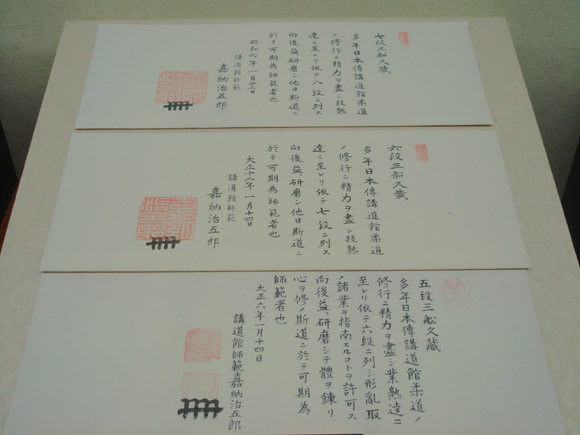 七段三船久蔵
多年日本傳講道館柔道
ノ修行ニ精力ヲ盡シ技熟
達ニ至レリ依テ八段ニ列ス
向後益研磨シ他日斯道ニ
於テ可期為師範者也
昭和六年一月廿三日
講道館師範
嘉納治五郎
六段三船久蔵
多年日本傳講道館柔道
ノ修行ニ精力ヲ盡シ技熟
達ニ至レリ依テ七段ニ列ス
向後益研磨シ他日斯道ニ
於テ可期為師範者也
大正十二年一月十四日
講道館師範
嘉納治五郎
五段三船久蔵
多年日本傳講道館柔道ノ
修行ニ精力ヲ盡シ業熟達ニ
至レリ依テ六段ニ列シ形亂取
ノ諸業ヲ指南スルコトヲ許可ス
向後益研磨シテ體ヲ錬リ
心ヲ修メ斯道ニ於テ可期為
師範者也
大正六年一月十四日
講道館師範嘉納治五郎